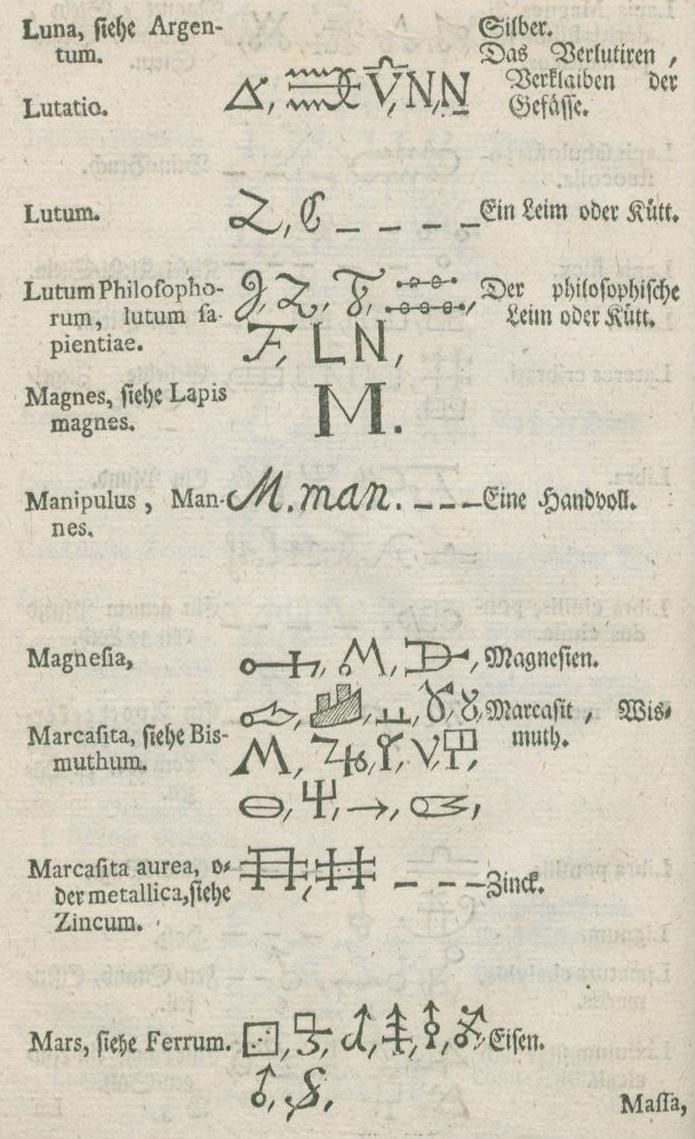 Luna, ſiehe Argen-
tum.
Silber.
Lutatio.
N, N
Das Verlutiren,
Verklaiben der
Gefäſſe.
Lutum.
Ein Leim oder Kütt.
Lutum Philoſopho-
rum, lutum ſa-
pientiae.
L N,
Der philoſophiſche
Leim oder Kütt.
Magnes, ſiehe Lapis
magnes.
M.
Manipulus, Man-
nes.
M. man. _ _ _
Eine Handvoll.
Magneſia,
Magneſien.
Marcaſita, ſiehe Bis-
muthum.
Marcaſit, Wis-
muth.
Marcaſita aurea, o-
der metallica, ſiehe
Zincum.
Zinck.
Mars, ſiehe Ferrum.
Eiſen.
Maſſa,